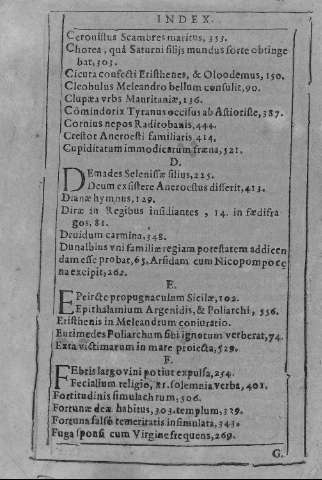 INDEX.
Ceronistus Scambres maritus, 353.
Chorea, quâ Saturni filijs mundus sorte obtinge
bat, 303.
Cicuta confecti Eristhenes, & Oloodemus, 150.
Cleobulus Meleandro bellum consulit, 90.
Clupæa vrbs Mauritaniæ, 136.
Comindorix Tyranus occisus ab Astioriste, 387.
Cornius nepos Radirobanis, 444.
Crestor Aneroesti familiaris 414.
Cupiditatum immodicarum fræna, 521.
D.
DEmades Selenissæ filius, 225.
Deum existere Aneroestus disserit, 413.
Dianæ hymnus, 129.
Diræ in Regibus insidiantes, 14. in fœdifra
gos, 81.
Druidum carmina, 348.
Dunalbius vni familiæ regiam potestatem addicen
dam esse probat, 65. Arsidam cum Nicopompo ce
na excipit, 262.
E.
EPeircte propugnaculum Siciliæ, 102.
Epithalamium Argenidis, & Poliarchi, 556.
Eristhenis in Meleandrum coniuratio.
Eurimedes Poliarchum sibi ignotum verberat, 74.
Exta victimarum in mare proiecta, 529.
F.
FEbris largo vini potiut expulsa, 254.
Fecialium religio, 81. solemnia verba, 401.
Fortitudinis simulachrum, 506.
Fortunæ deæ habitus, 303. templum, 329.
Fortuna falsò temeritatis insimulata, 343.
Fuga sponsi cum Virgine frequens, 269.
G.